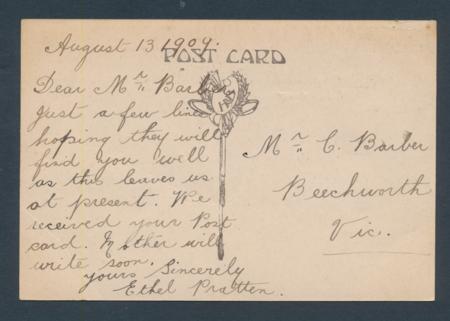 August 13 1909.
POST CARD
Dear Mr Barber
Just a few lines
hoping they will
find you well
as this leaves us
at present. We
received your Post
card. Mother will
write soon.
yours Sincerely
Ethel Pratten.
Mr C. Barber
Beechworth
Vic.